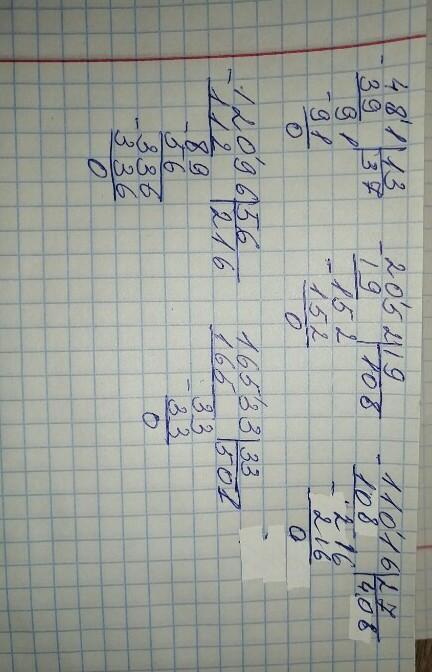 - 481 | 13
39 | 37
- 91
91
0
- 2052 | 19
19 | 108
- 152
152
0
- 11016 | 27
108 | 408
- 216
216
0
- 12096 | 56
112 | 216
- 89
56
- 336
336
0
16533 | 33
165 | 501
- 33
33
0